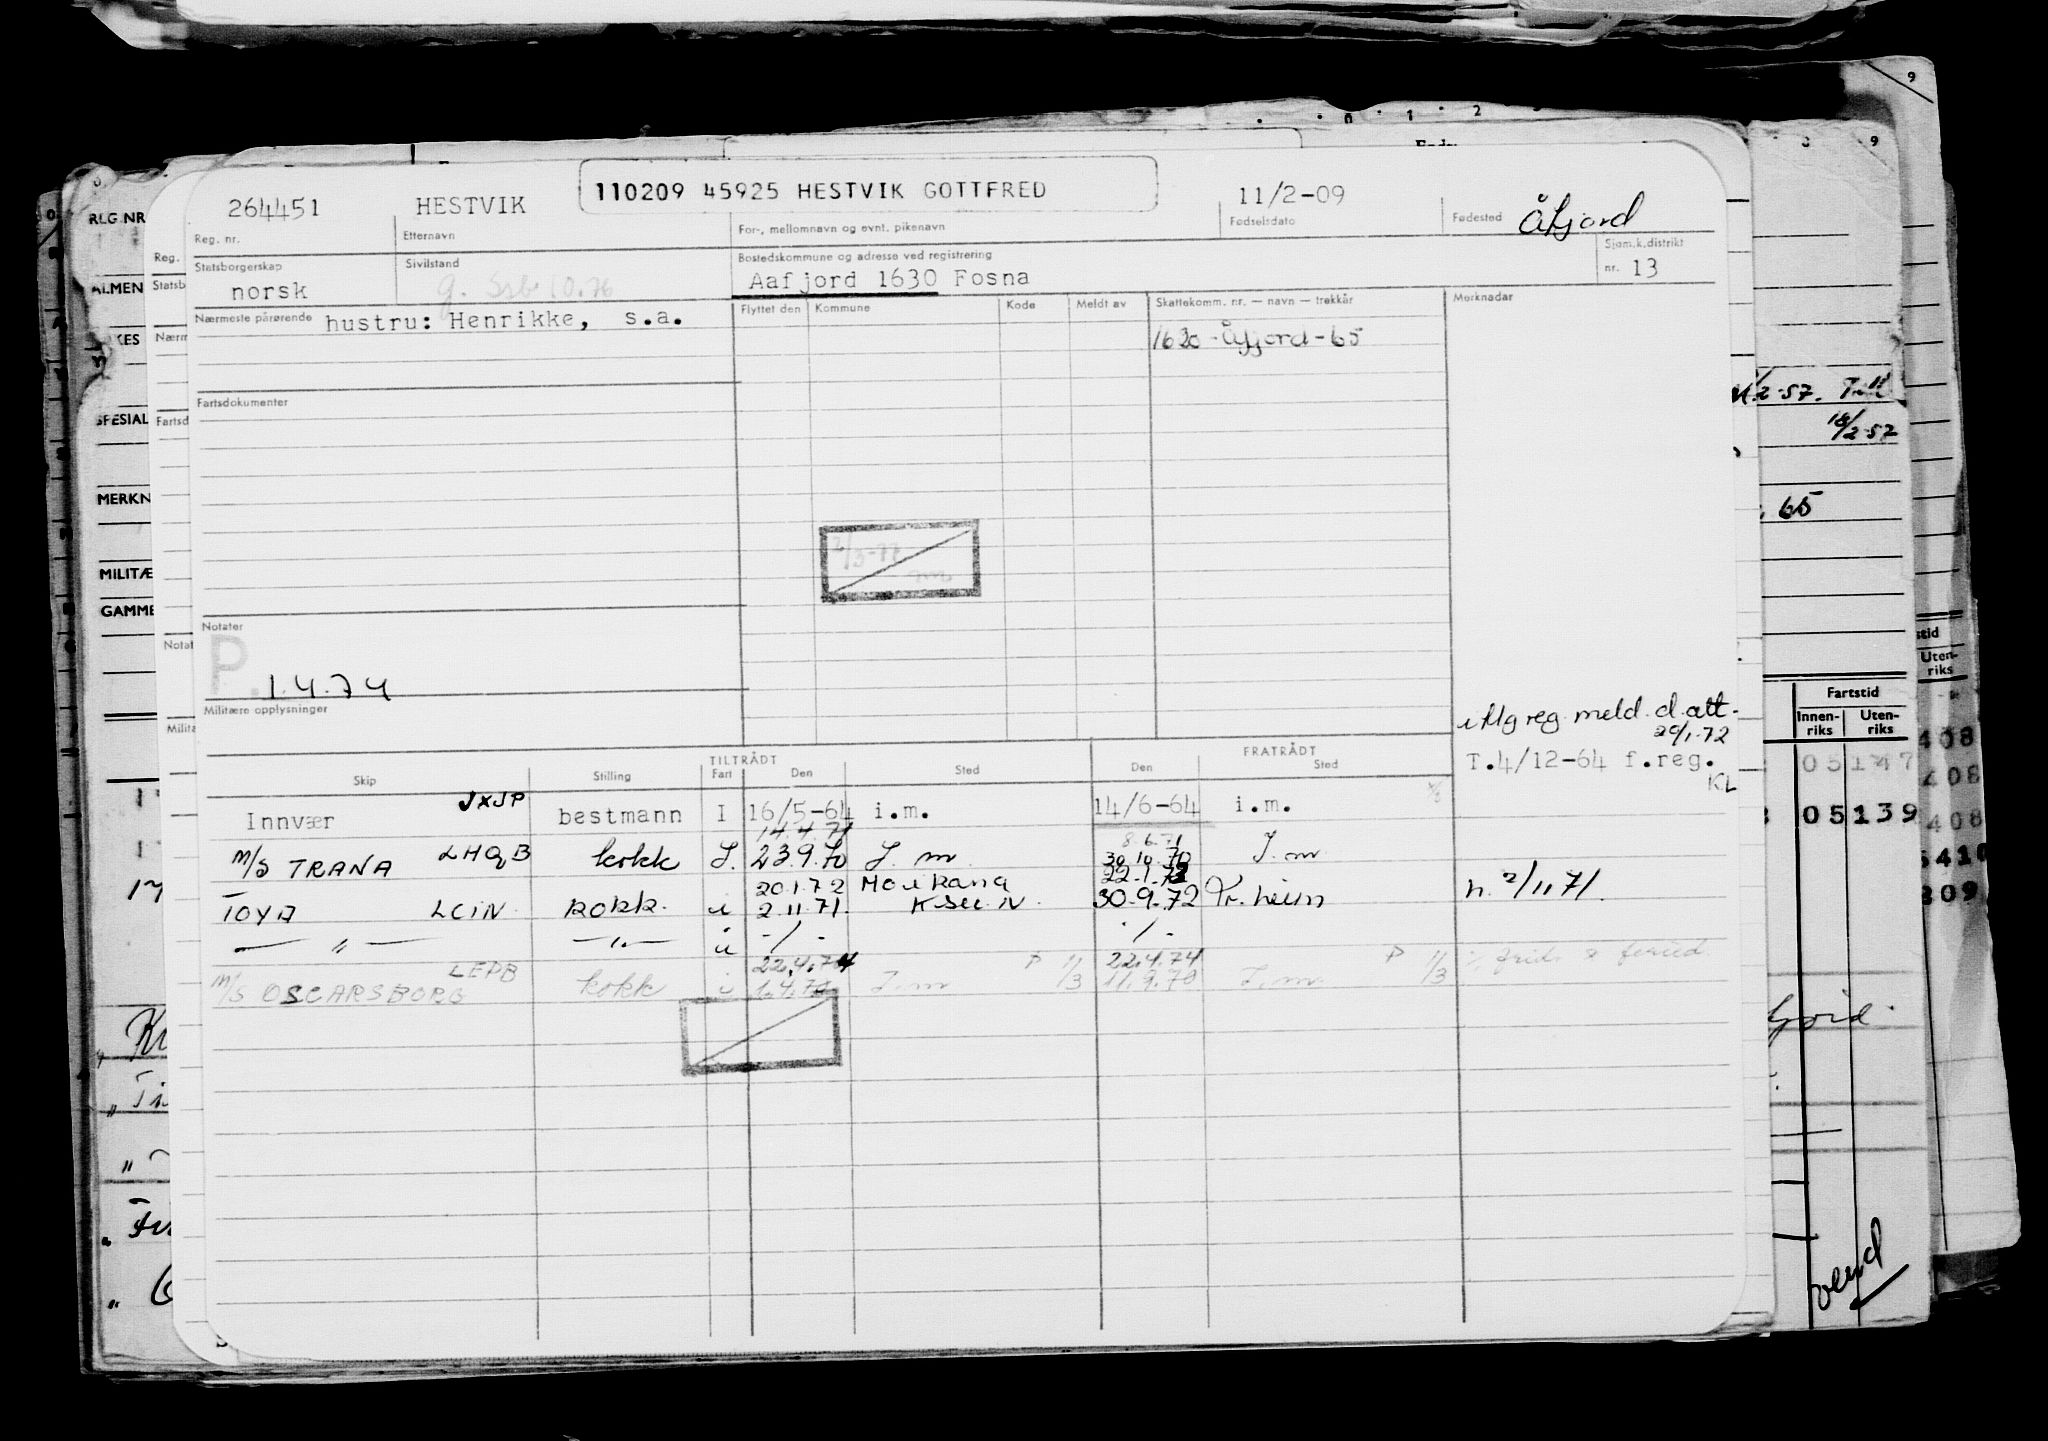 9
0 1 2
9
REG NR
264451 HESTVIK 110209 45925 HESTVIK GOTTFRED 11/2-09 Åfjord
Reg. nr. Etternavn For-, mellomnavn og evnt. pikenavn Fødselsdato Fødested
Statsborgerskap Sivilstand Bostedskommune og adresse ved registrering Sjøm.k.distrikt
norsk Aafjord 1630 Fosna nr. 13
Nærmeste pårørende hustru: Henrikke, s.a.
Flyttet den Kommune Kode Meldt av Skattekomm. nr. — navn — trekkår Merknader
1630 - Åfjord - 65
Fartsdokumenter
2/3-77
Notater
P. 1.4.74
Militære opplysninger
reg. meld. d. att.
20/1-72
T.4/12-64 f.reg.
KL
TILTRÅDT FRATRÅDT
Skip Stilling Fart Den Sted Den Sted
Innvær JXJP bestmann I 16/5-64 i.m. 14/6-64 i.m.
14.4.71 8.6.71
M/S TRANA LHQB kokk I. 23.9.70 I. m. 30.10.70 I. m.
20.1.72 22.1.72
TOYA LCIN kokk i 2.11.71. K.su. N. 30.9.72 Tr.heim n. 2/11 71.
— " — — " — u - / - - / -
22.4.74 22.4.74
M/S OSCARSBORG LEPB kokk i 1.4.74 I. m P 1/3 11.9.70 I. m. P 1/3
ALMEN
SPESIAL
MERKN
MILITÆ
GAMME
Reg.
Statsb
Nærm
Fartsd
Notat
Milita
18/2-57
65
Fartstid
Innen-riks Uten-riks
05147
05139
Uten-riks
408
408
408
5410
309
vend